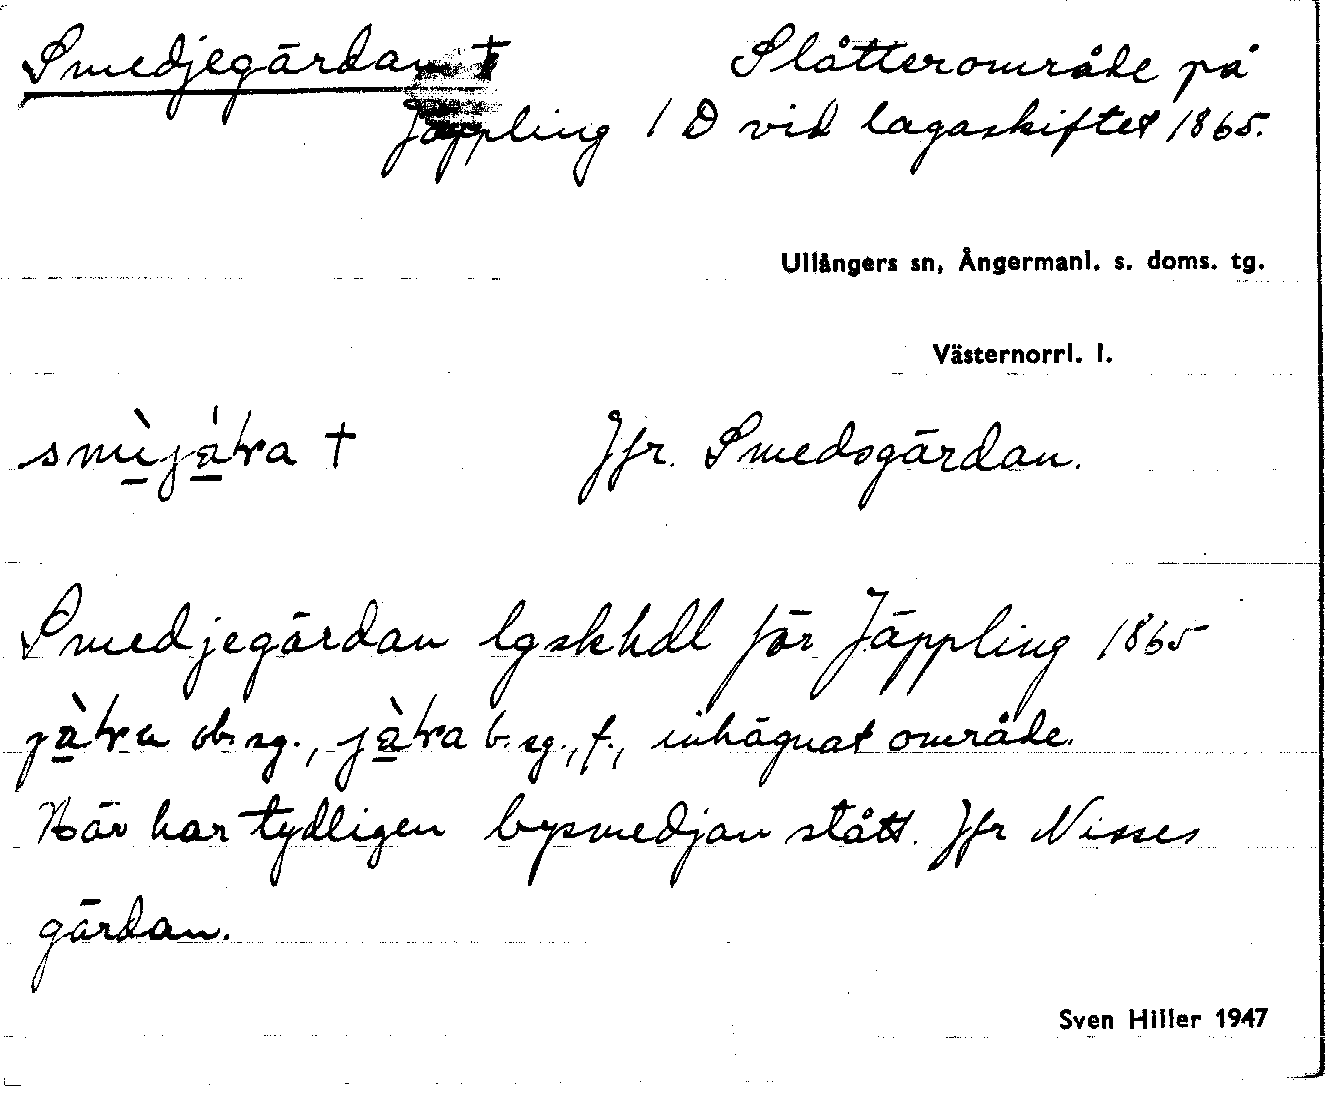 Smedjegärdan † Slåtterområde på
Jäppling 1 D vid lagaskiftet 1865.
Ullångers sn, Ångermanl. s. doms. tg.
Västernorrl. l.
Jfr. Smedsgärdan.
Smedjegärdan lgskhdl för Jäppling 1865
ob. sg., b. sg., f., inhägnat område.
Här har tydligen bysmedjan stått. Jfr Nisses
gärdan.
Sven Hiller 1947